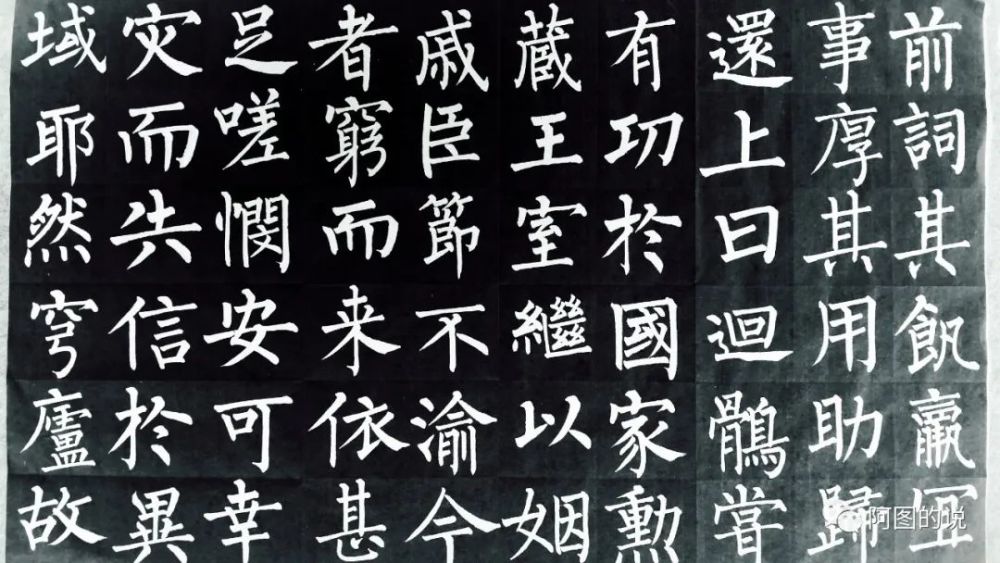 前詞其飤羸宜
事厚其用助歸
還上曰迴鶻嘗
有功於國家勲
蔵王室繼以姻
戚臣節不渝今
者窮而来依甚
足嗟憫安可幸
灾而失信於異
域耶然穹廬故
阿图的说